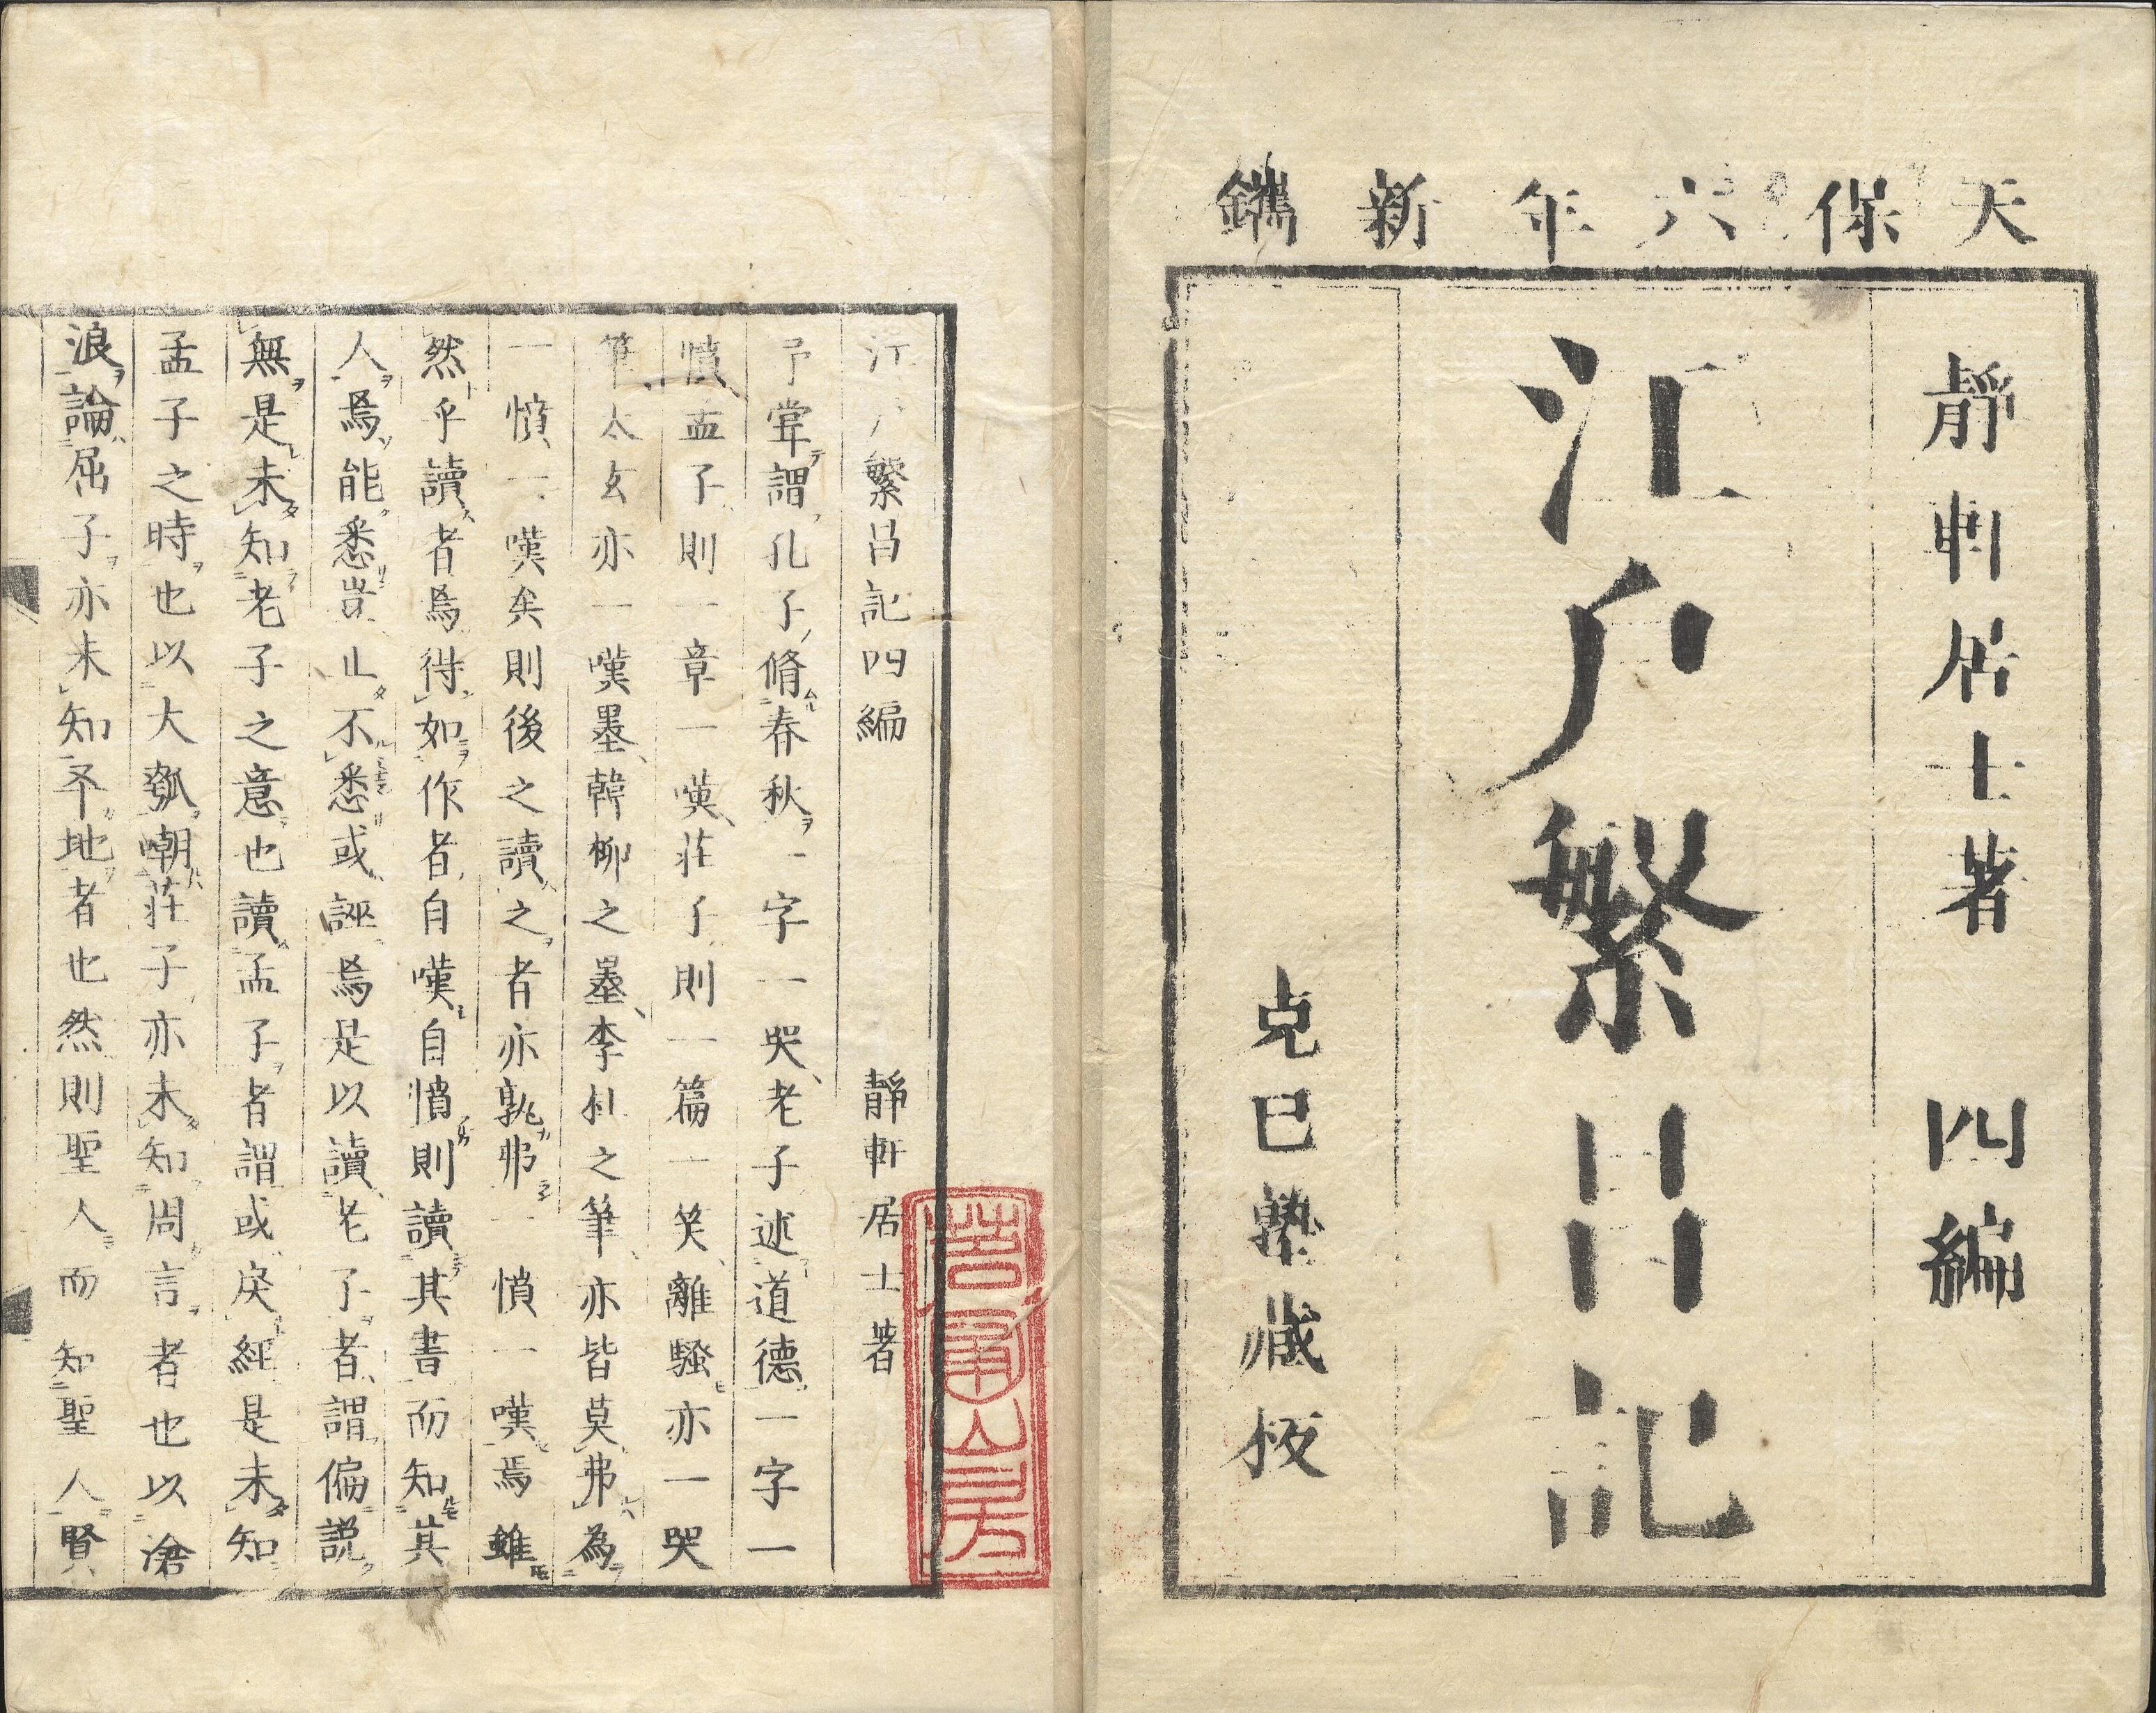 天保六年新鐫
靜軒居士著　四編
江戶繁昌記
克己塾藏板
江戶繁昌記四編　靜軒居士著
予甞謂孔子脩春秋一字一哭老子述道德一字一
憤孟子則一章一嘆莊子則一篇一笑離騷亦一哭
筆太玄亦一嘆墨韓柳之墨李杜之筆亦皆莫弗為
一憤一嘆矣則後之讀之者亦孰弗一憤一嘆焉雖
然乎讀者焉得如作者自嘆自憤則讀其書而知其
人焉能悉豈止不悉或誣焉是以讀老子者謂偏說
無是未知老子之意也讀孟子者謂或戾經是未知
孟子之時也以大瓠嘲莊子亦未知周言者也以滄
浪論屈子亦未知平地者也然則聖人而知聖人賢